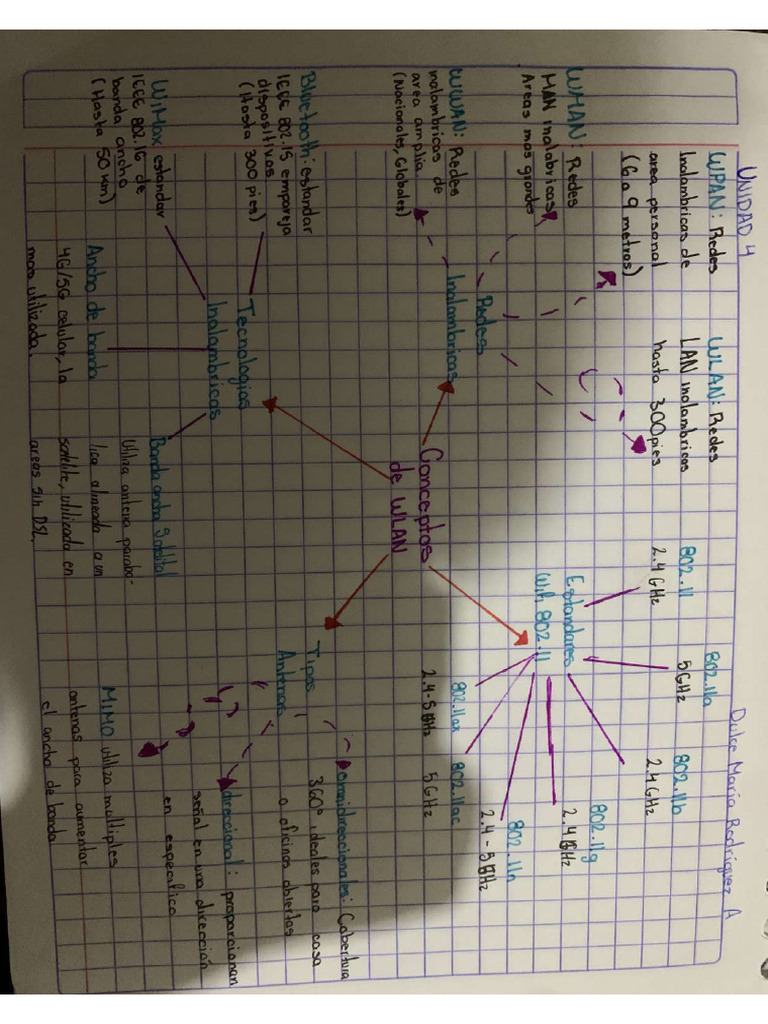 UNIDAD 4
Dulce María Rodríguez A
WPAN: Redes
Inalambricas de
area personal
(6 a 9 metros)
WLAN: Redes
LAN inalambricas
hasta 300 pies
WMAN: Redes
MAN inalabricas
Areas mas grandes
WWAN: Redes
inalambricos de
area amplia
(Nacionales, Globales)
Redes
Inalambricas
Conceptos
de WLAN
Estandares
Wifi 802.11
802.11
2.4 GHz
802.11a
5GHz
802.11b
2.4 GHz
802.11g
2.4 GHz
802.11n
2.4 - 5 GHz
802.11ac
5 GHz
802.11ax
2.4-5 GHz
Bluetooth: estandar
IEEE 802.15 empareja
dispositivos
(Hasta 300 pies)
WiMax estandar
IEEE 802.16 de
banda ancha
(Hasta 50 km)
Tecnologias
Inalambricas
Ancho de banda
4G/5G celular, la
mas utilizada.
Banda ancha Satelital
Utiliza antena parabo-
lica alineada a un
satelite, utilizada en
areas sin DSL.
Tipos
Antenas
omnidireccionales: Cobertura
360° ideales para casa
o oficinas abiertas
direccional: proporcionan
señal en una dirección
en especifico
MIMO utiliza multiples
antenas para aumentar
el ancho de banda